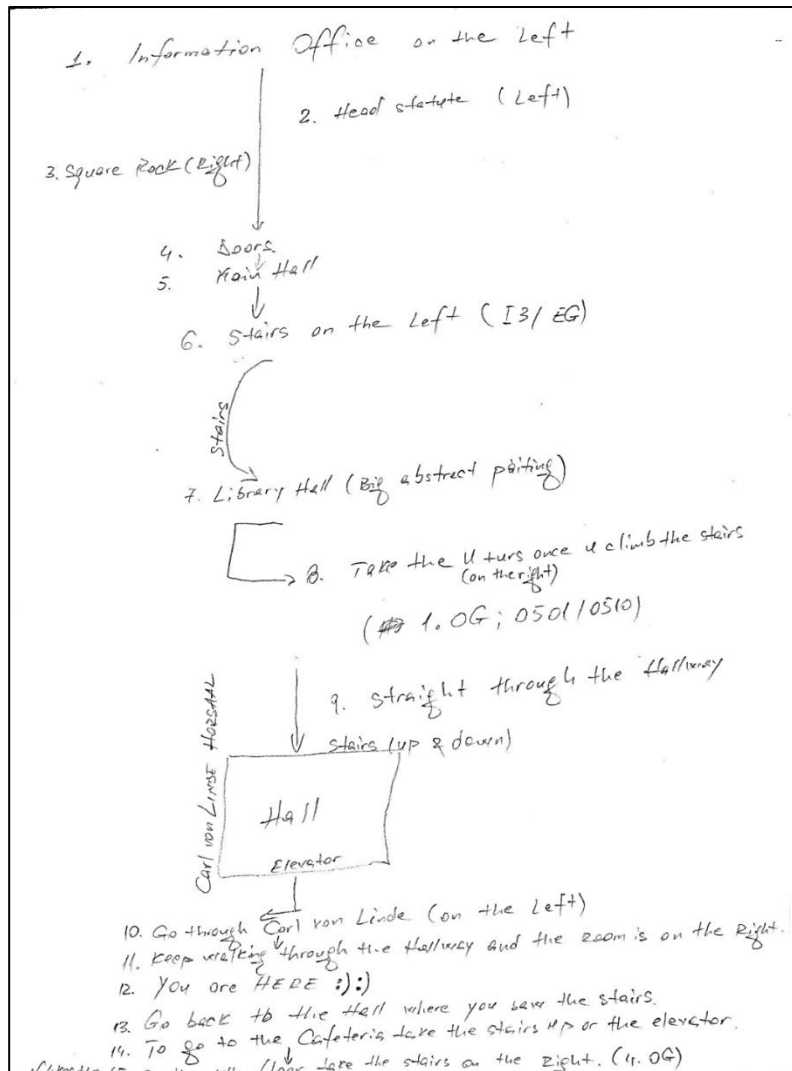 1. Information Office on the Left
2. Head statute (Left)
3. Square Rock (Right)
4. Doors
5. Main Hall
6. Stairs on the Left (I3/EG)
Stairs
7. Library Hall (Big abstract paiting)
8. Take the U turs once u climb the stairs
(on the right)
(1. OG; 0501/0510)
9. Straight through the Hallway
Stairs (up & down)
Carl von LINDE HORSAAL
Hall
Elevator
10. Go through Carl von Linde (on the Left)
11. Keep walking through the Hallway and the Room is on the Right.
12. You are HERE :):)
13. Go back to the Hall where you saw the stairs.
14. To go to the Cafeteria take the stairs up or the elevator.
take the stairs on the Right. (4. OG)